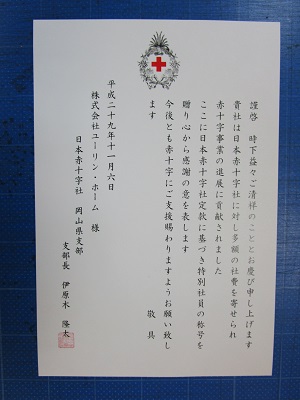 謹啓 時下益々ご清祥のこととお慶び申し上げます
貴社は日本赤十字社に対し多額の社費を寄せられ
赤十字事業の進展に貢献されました
ここに日本赤十字社定款に基づき特別社員の称号を
贈り心から感謝の意を表します
今後とも赤十字にご支援賜わりますようお願い致し
ます 敬具
平成二十九年十一月六日
株式会社ユーリン・ホーム 様
日本赤十字社 岡山県支部
支部長 伊原木 隆太